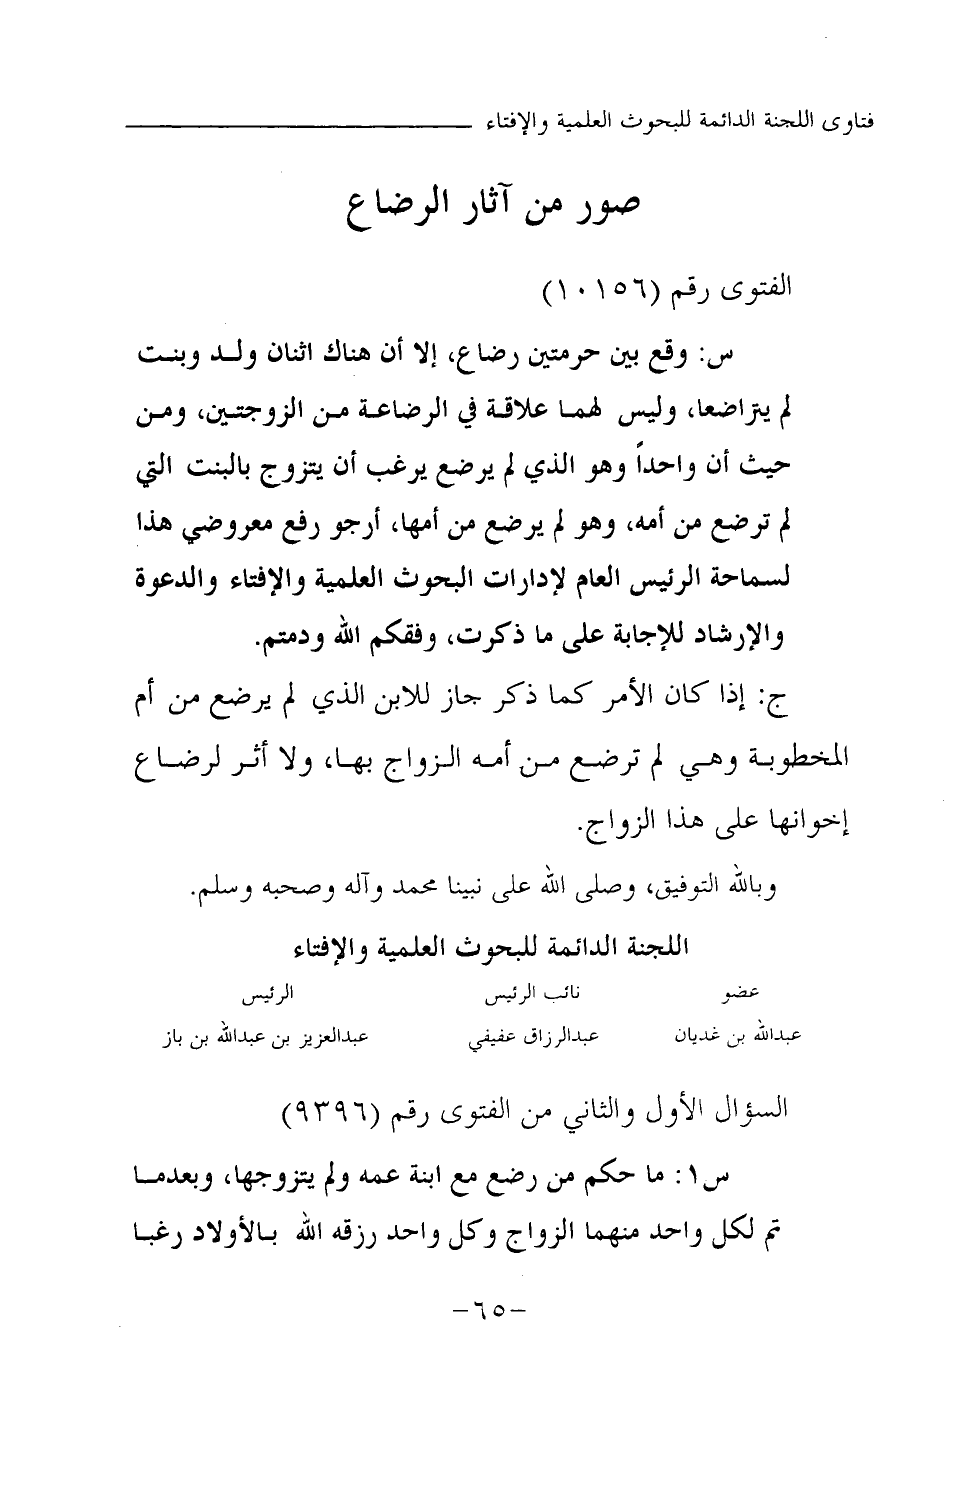 فتاوى اللجنة الدائمة للبحوث العلمية والإفتاء
صور من آثار الرضاع
الفتوى رقم (١٠١٥٦)
س: وقع بين حرمتين رضاع، إلا أن هناك اثنان ولد وبنت
لم يتراضعا، وليس لهما علاقة في الرضاعة من الزوجتين، ومن
حيث أن واحداً وهو الذي لم يرضع يرغب أن يتزوج بالبنت التي
لم ترضع من أمه، وهو لم يرضع من أمها، أرجو رفع معروضي هذا
لسماحة الرئيس العام لإدارات البحوث العلمية والإفتاء والدعوة
والإرشاد للإجابة على ما ذكرت، وفقكم الله ودمتم.
ج: إذا كان الأمر كما ذكر جاز للابن الذي لم يرضع من أم
المخطوبة وهي لم ترضع من أمه الزواج بها، ولا أثر لرضاع
إخوانها على هذا الزواج.
وبالله التوفيق، وصلى الله على نبينا محمد وآله وصحبه وسلم.
اللجنة الدائمة للبحوث العلمية والإفتاء
عضو نائب الرئيس الرئيس
عبدالله بن غديان عبدالرزاق عفيفي عبدالعزيز بن عبدالله بن باز
السؤال الأول والثاني من الفتوى رقم (٩٣٩٦)
س١: ما حكم من رضع مع ابنة عمه ولم يتزوجها، وبعدما
تم لكل واحد منهما الزواج وكل واحد رزقه الله بالأولاد رغبا
-٦٥-